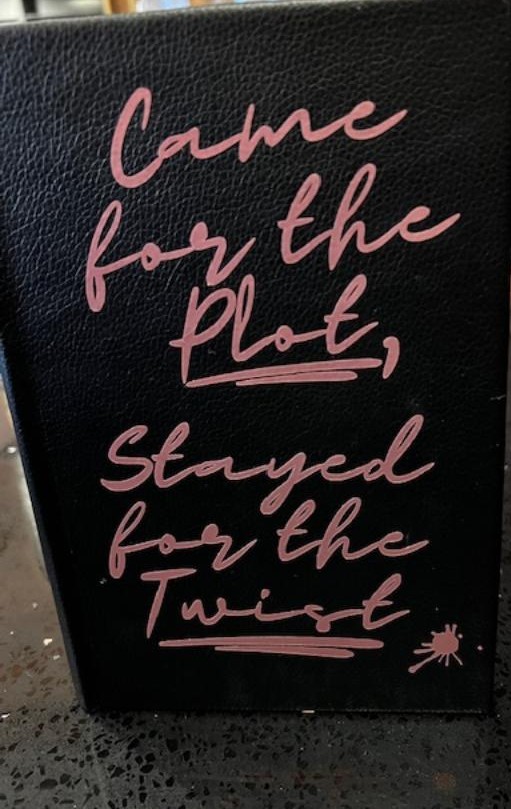 Came
for the
Plot,
Stayed
for the
Twist